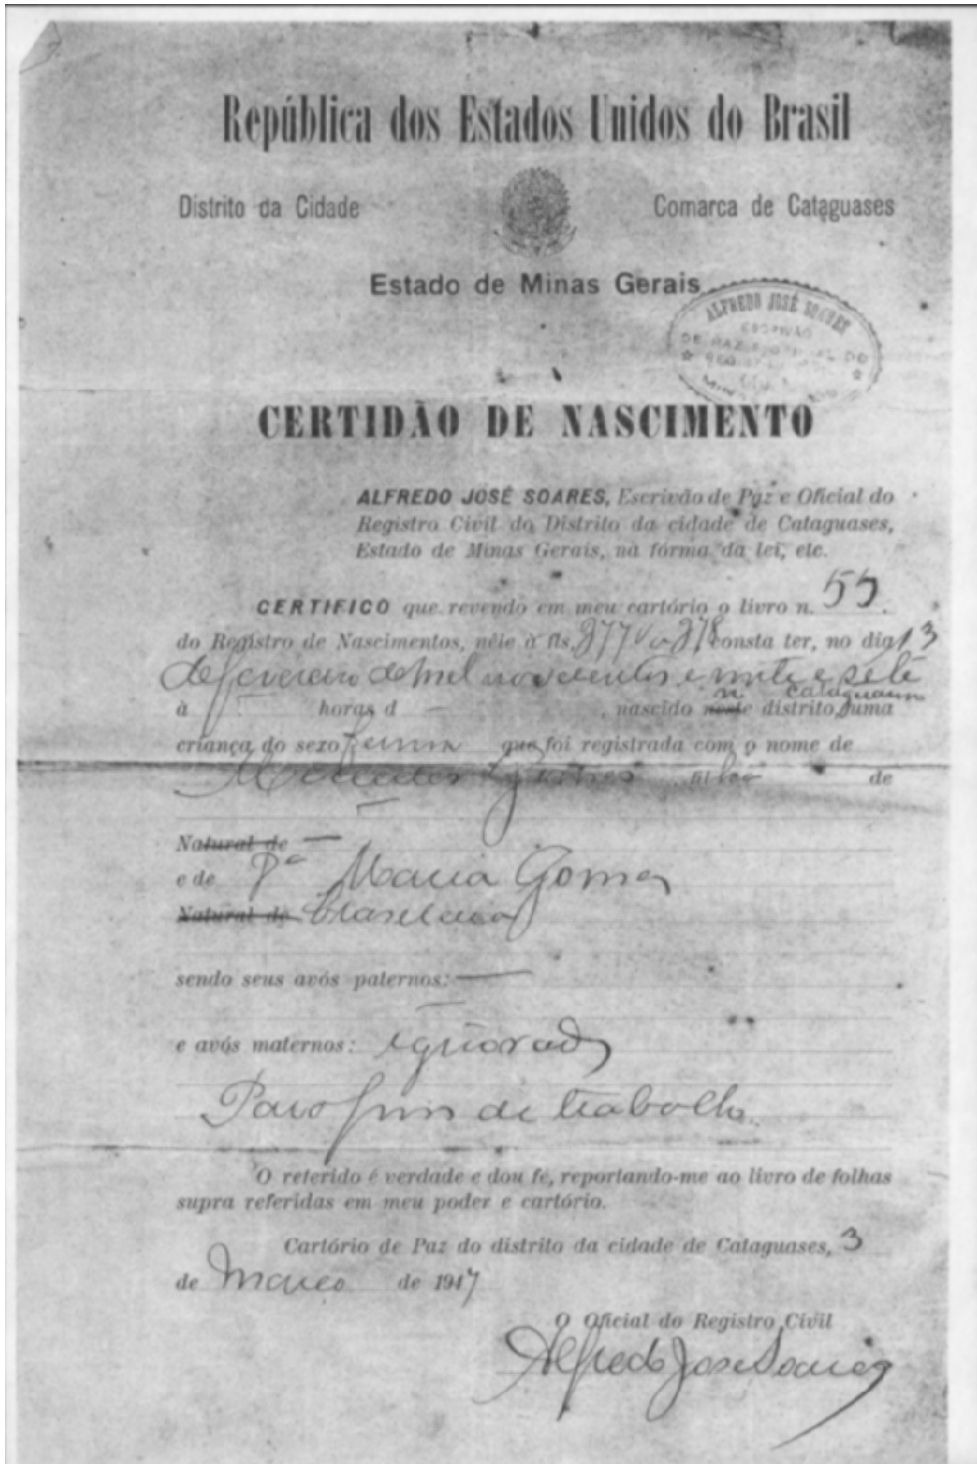 República dos Estados Unidos do Brasil
Distrito da Cidade
Comarca de Cataguases
Estado de Minas Gerais
ALFREDO JOSÉ SOARES
ESCRIVÃO
CERTIDÃO DE NASCIMENTO
ALFREDO JOSÉ SOARES, Escrivão de Paz e Oficial do
Registro Civil do Distrito da cidade de Cataguases,
Estado de Minas Gerais, na fórma da lei, etc.
CERTIFICO que revendo em meu cartório o livro n. 55.
do Registro de Nascimentos, nêle à fls. 277 V a 278 consta ter, no dia 13
de fevereiro de mil novecentos e vinte e sete
à horas d , nascido neste distrito, uma
criança do sexo femin que foi registrada com o nome de
Gomes filha de
Natural de —
e de Da Maria Gomes
Natural de brasileira
sendo seus avós paternos: —
e avós maternos: ignorados
Para fins de trabalho.
O referido é verdade e dou fé, reportando-me ao livro de folhas
supra referidas em meu poder e cartório.
Cartório de Paz do distrito da cidade de Cataguases, 3
de Março de 1947
O Oficial do Registro Civil
Alfredo José Soares